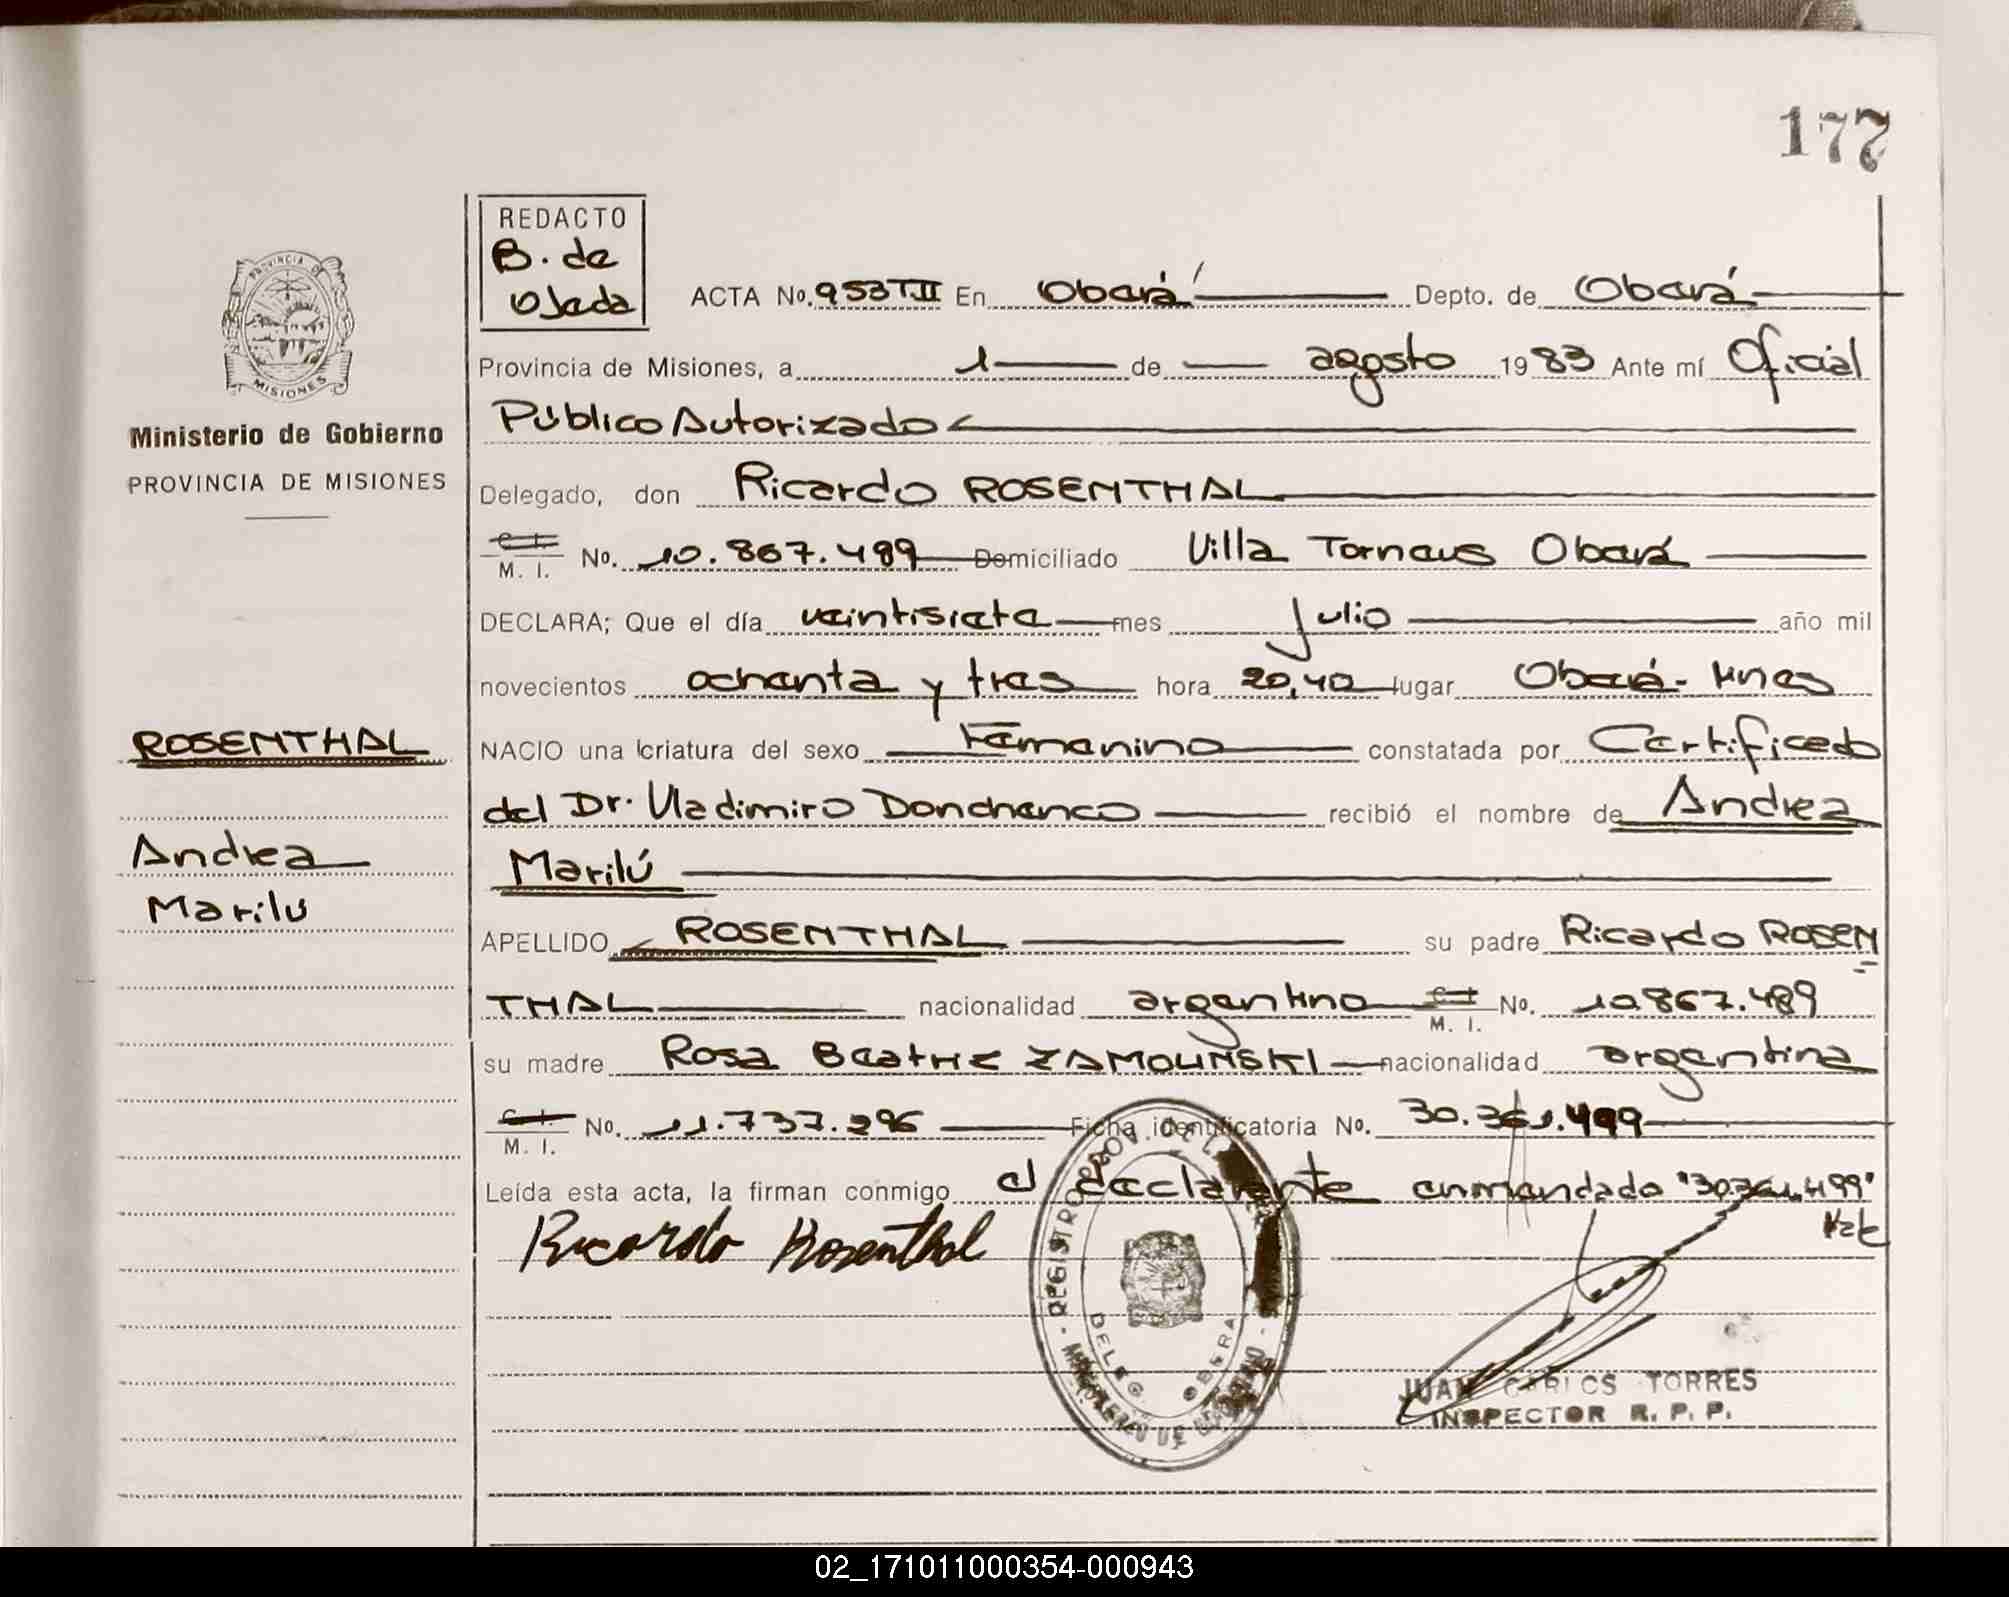 177
REDACTO
B. de
Ojeda
ACTA No. 953 T.II En Oberá Depto. de Oberá
Provincia de Misiones, a 1 de agosto 1983 Ante mí Oficial
Público Autorizado
Delegado, don Ricardo ROSENTHAL
C. I.
M. I. No. 10.867.489 Domiciliado Villa Tornaus Oberá
DECLARA; Que el día veintisiete mes julio año mil
novecientos ochenta y tres hora 20,40 lugar Oberá- Mnes
NACIO una criatura del sexo Femenino constatada por Certificado
del Dr. Vladimiro Donchenco recibió el nombre de Andrea
Marilú
APELLIDO ROSENTHAL su padre Ricardo ROSEN
THAL nacionalidad argentino C. I. M. I. No. 10.867.489
su madre Rosa Beatriz ZAMOLINSKI nacionalidad argentina
C. I.
M. I. No. 11.737.296 Ficha identificatoria No. 30.361.499
Leída esta acta, la firman conmigo el declarante enmendado "30.361.499"
Vale
Ricardo Rosenthal
REGISTRO PROV. DE LAS
DELEG. OBERA
JUAN CARLOS TORRES
INSPECTOR R. P. P.
PROVINCIA DE
MISIONES
Ministerio de Gobierno
PROVINCIA DE MISIONES
ROSENTHAL
Andrea
Marilu
02_171011000354-000943